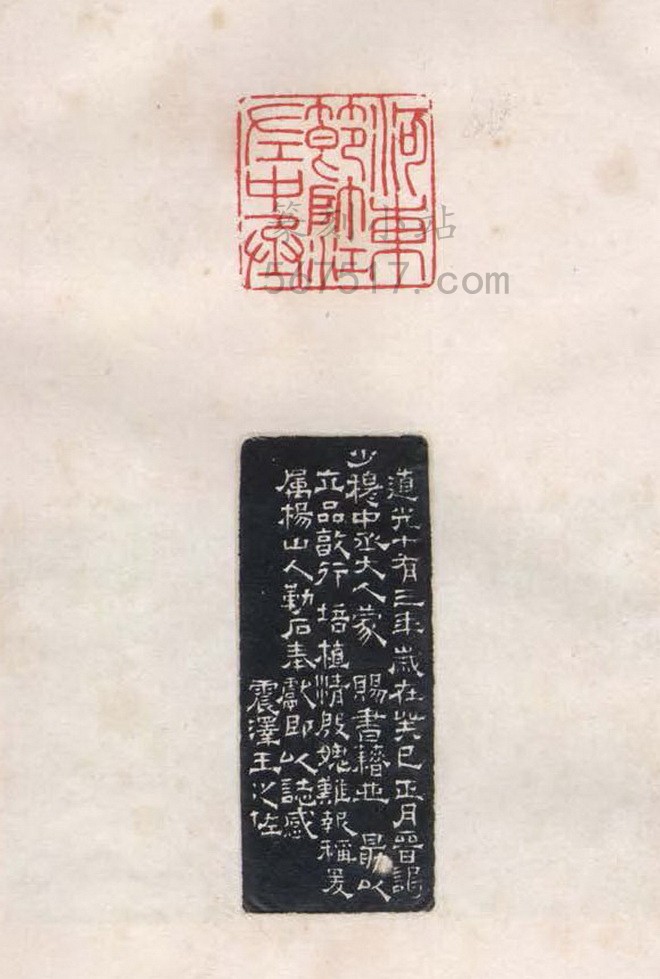 河東
節帥江
左中丞
篆刻小站
567517.com
道光十有三年歲在癸巳正月晉謁
少穆中丞大人蒙 賜書籍並 勗以
立品敦行 培植情殷媿難報稱爰
属楊山人勒石奉獻即以誌感
震澤王之佐